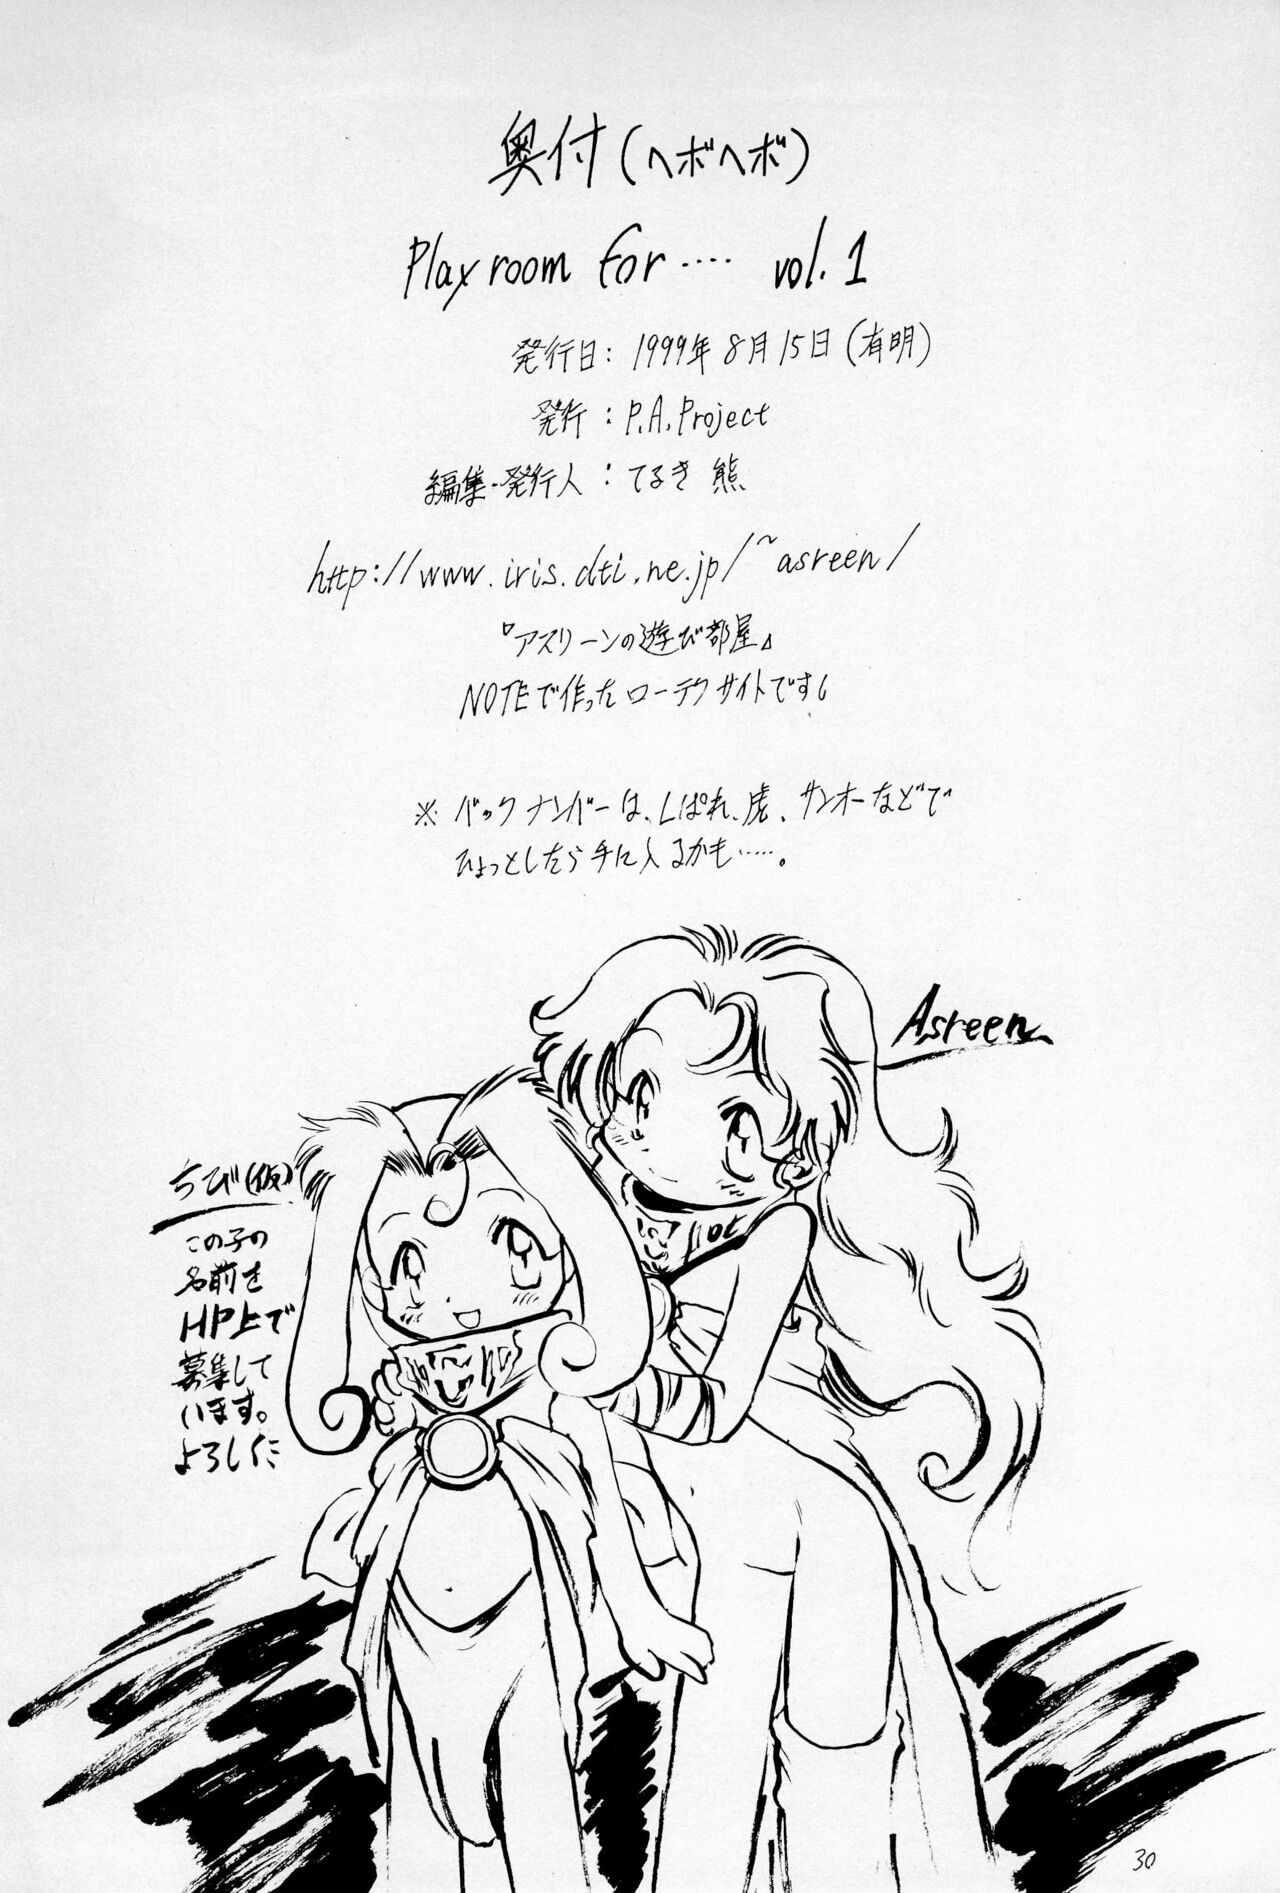 奥付(ヘボヘボ)
Playroom for‥‥ vol.1
発行日：1999年8月15日(有明)
発行：P.A.Project
編集・発行人：てるき熊
http://www.iris.dti.ne.jp/~asreen/
『アスリーンの遊び部屋』
NOTEで作ったローテクサイトですし
※バックナンバーは、しぱれ、虎、サンオーなどで
ひょっとしたら手に入るかも……。
Asreen
ちび(仮)
この子の
名前を
HP上で
募集して
います。
よろしくだ
30